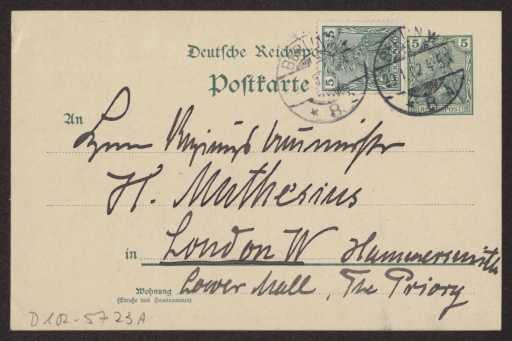 Deutsche Reichspost
Postkarte
5 5
5 5
BERLIN W
* 8
An
Herrn Regierungsbaumeister
H. Muthesius
in London W Hammersmith
Wohnung Lower Mall, The Priory
(Straße und Hausnummer)
D102-5723A